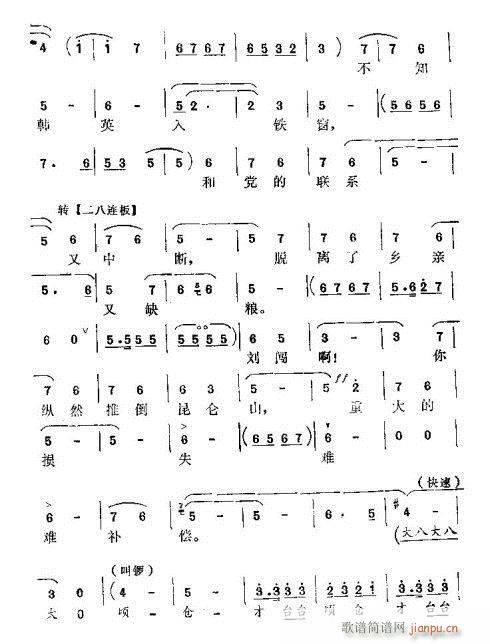 4 (i i 7 | 6767 | 6532 | 3) 7 | 7 6
不 知
5 - | 6 - | 5 2· | 2 3 | 5 - | (5656
韩 英 入 铁 窗,
7· 6 | 53 5 | 5) 6 | 7 6 | 7 6 | 5 -
和 党 的 联 系
转【二八连板】
5 6 | 7 6 | 5 - | 5 7 | 6 7 | 7 6
又 中 断, 脱 离 了 乡 亲
5· 6 | 5 7 | 6 6 | 5 - | (6767 | 5·627
又 缺 粮。
6 0 | 5·555 | 5555 | 5555) | 6 5 | 3 - | 3 7
刘 闯 啊! 你
7 6 | 7 6 | 6 3 | 5 - | 5 2 | 7 6
纵 然 推 倒 昆 仑 山, 重 大 的
5 - | 5 - | 6 - | (6567) | 6 - | 0 0
损 失 难
(快速)
6 - | 7 6 | 5 - | 5 - | 6· 5 | 4 -
难 补 偿。 (大八大八
(叫锣)
3 0 | (4 - | 5 - | 3·333 | 2321 | 3·333
大 顷 仓 才 台台 顷仓 才 台台
歌谱简谱网
jianpu.cn